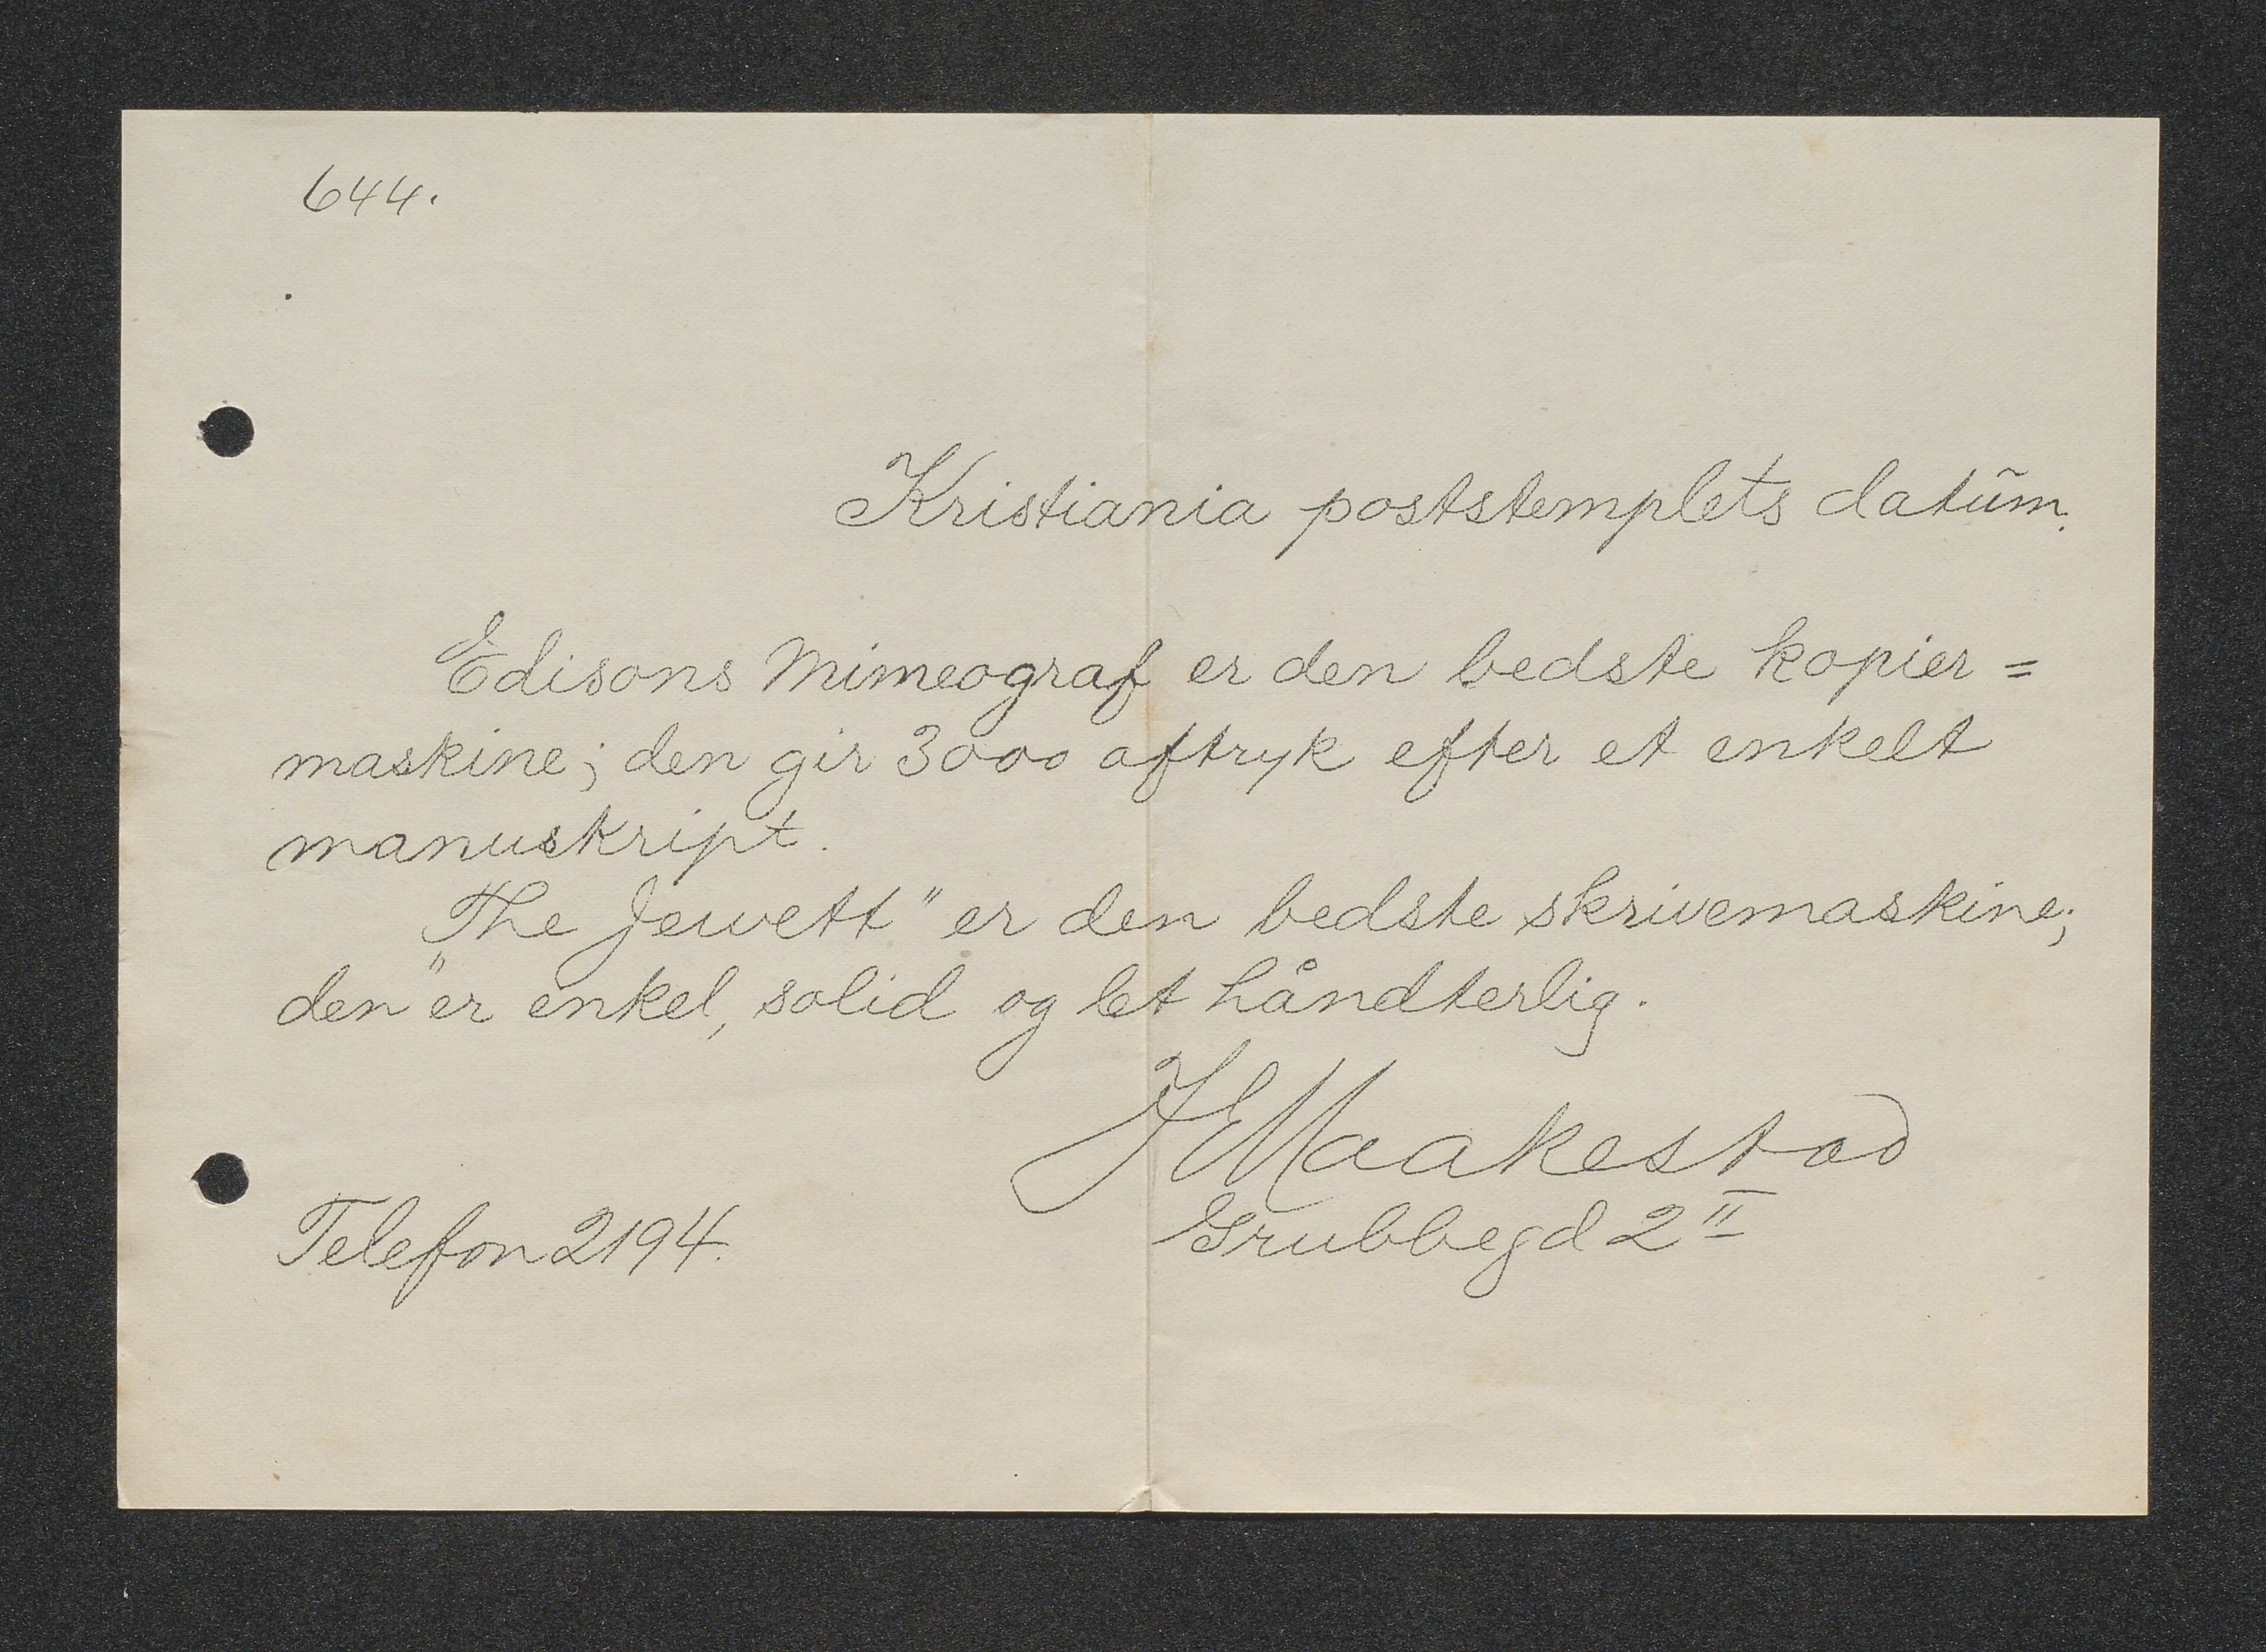 644.
Kristiania poststemplets datum.
Edisons Mimeograf er den bedste kopier=
maskine; den gir 3000 aftryk efter et enkelt
manuskript.
„The Jewett" er den bedste skrivemaskine;
den er enkel, solid og let håndterlig.
J E Maakestad
Telefon 2194. Grubbegd 2 II